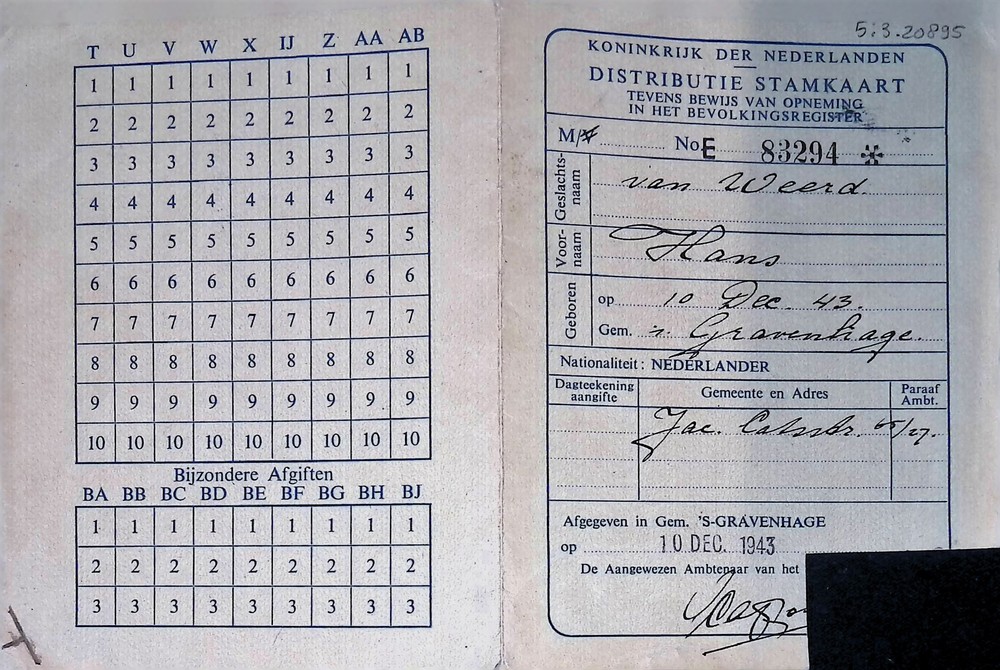 T U V W X IJ Z AA AB
1 1 1 1 1 1 1 1 1
2 2 2 2 2 2 2 2 2
3 3 3 3 3 3 3 3 3
4 4 4 4 4 4 4 4 4
5 5 5 5 5 5 5 5 5
6 6 6 6 6 6 6 6 6
7 7 7 7 7 7 7 7 7
8 8 8 8 8 8 8 8 8
9 9 9 9 9 9 9 9 9
10 10 10 10 10 10 10 10 10
Bijzondere Afgiften
BA BB BC BD BE BF BG BH BJ
1 1 1 1 1 1 1 1 1
2 2 2 2 2 2 2 2 2
3 3 3 3 3 3 3 3 3
5:3.20895
KONINKRIJK DER NEDERLANDEN
DISTRIBUTIE STAMKAART
TEVENS BEWIJS VAN OPNEMING
IN HET BEVOLKINGSREGISTER
M/ No. E 83294 *
Geslachts-
naam
van Weerd.
Voor-
naam
Hans
Geboren
op 10 Dec. 43.
Gem. 's Gravenhage.
Nationaliteit: NEDERLANDER
Dagteekening
aangifte
Gemeente en Adres
Paraaf
Ambt.
Jac. Catsstr.
Afgegeven in Gem. 'S-GRAVENHAGE
op 10 DEC. 1943
De Aangewezen Ambtenaar van het